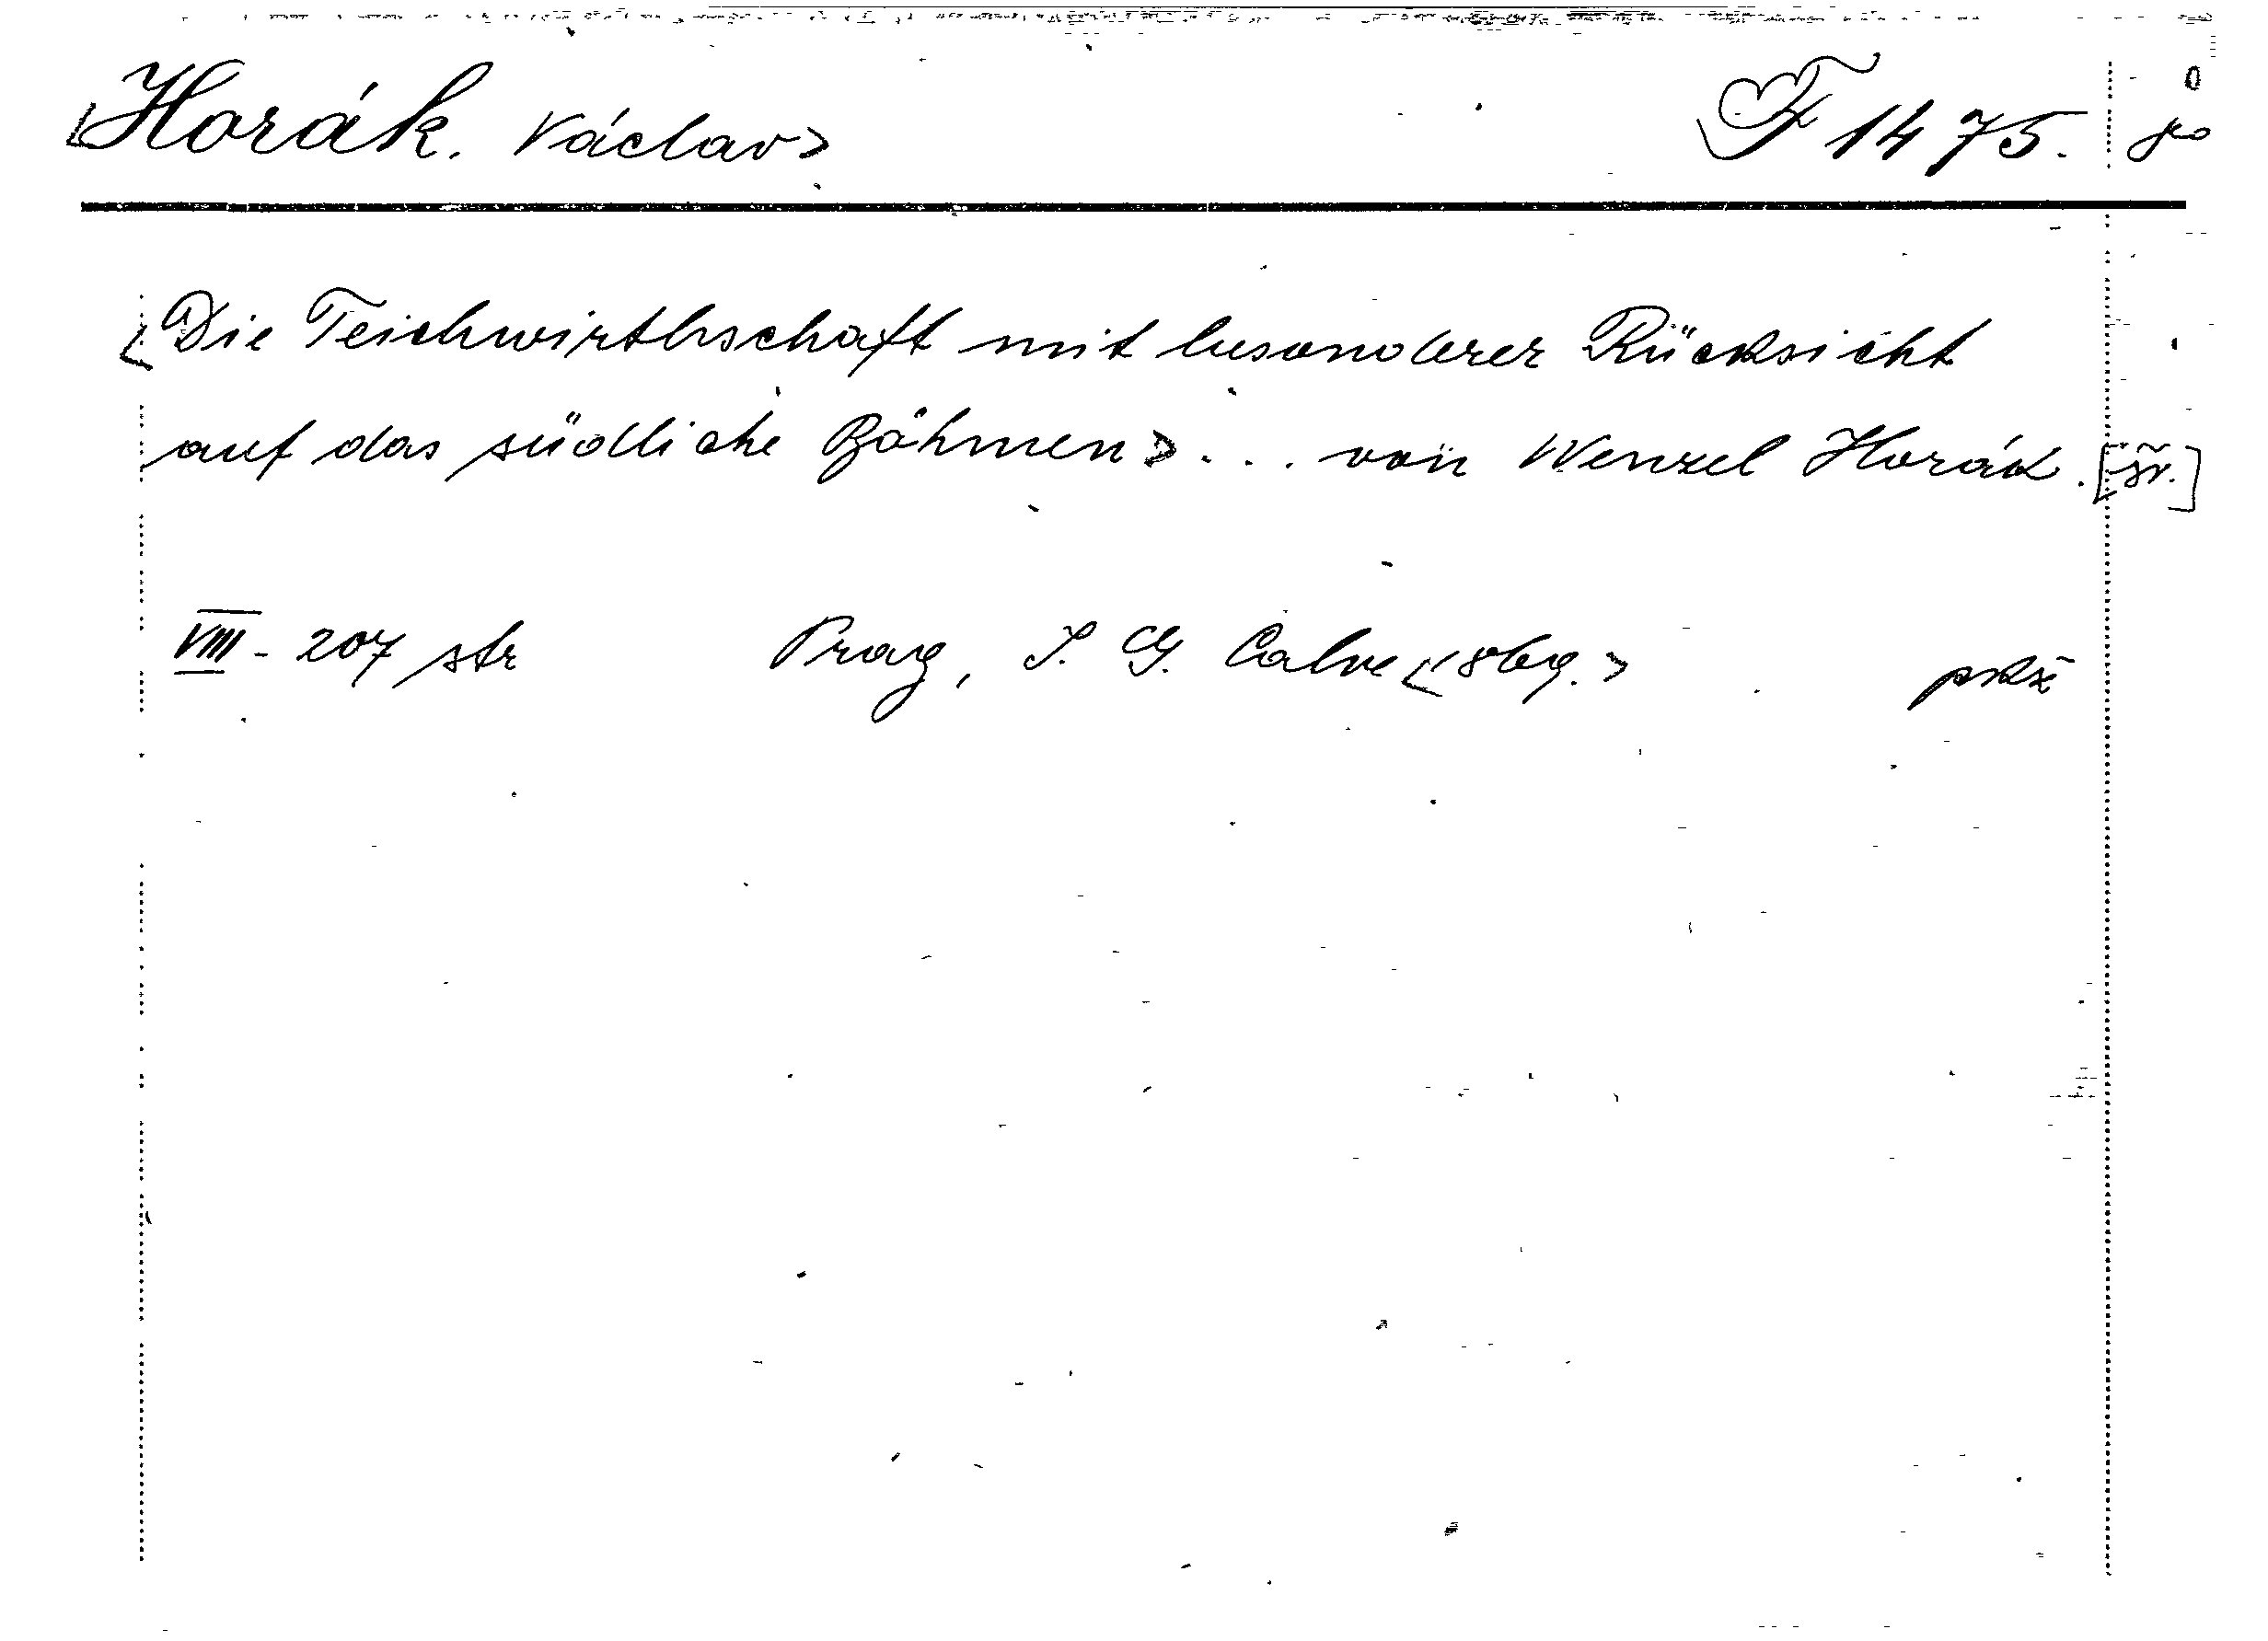 <Horák. Václav> F 1475.
<Die Teichwirthschaft mit besonderer Rücksicht
auf das südliche Böhmen> ... von Wenzel Horák.
VIII - 207 str Prag, J. G. Calve <1869.>